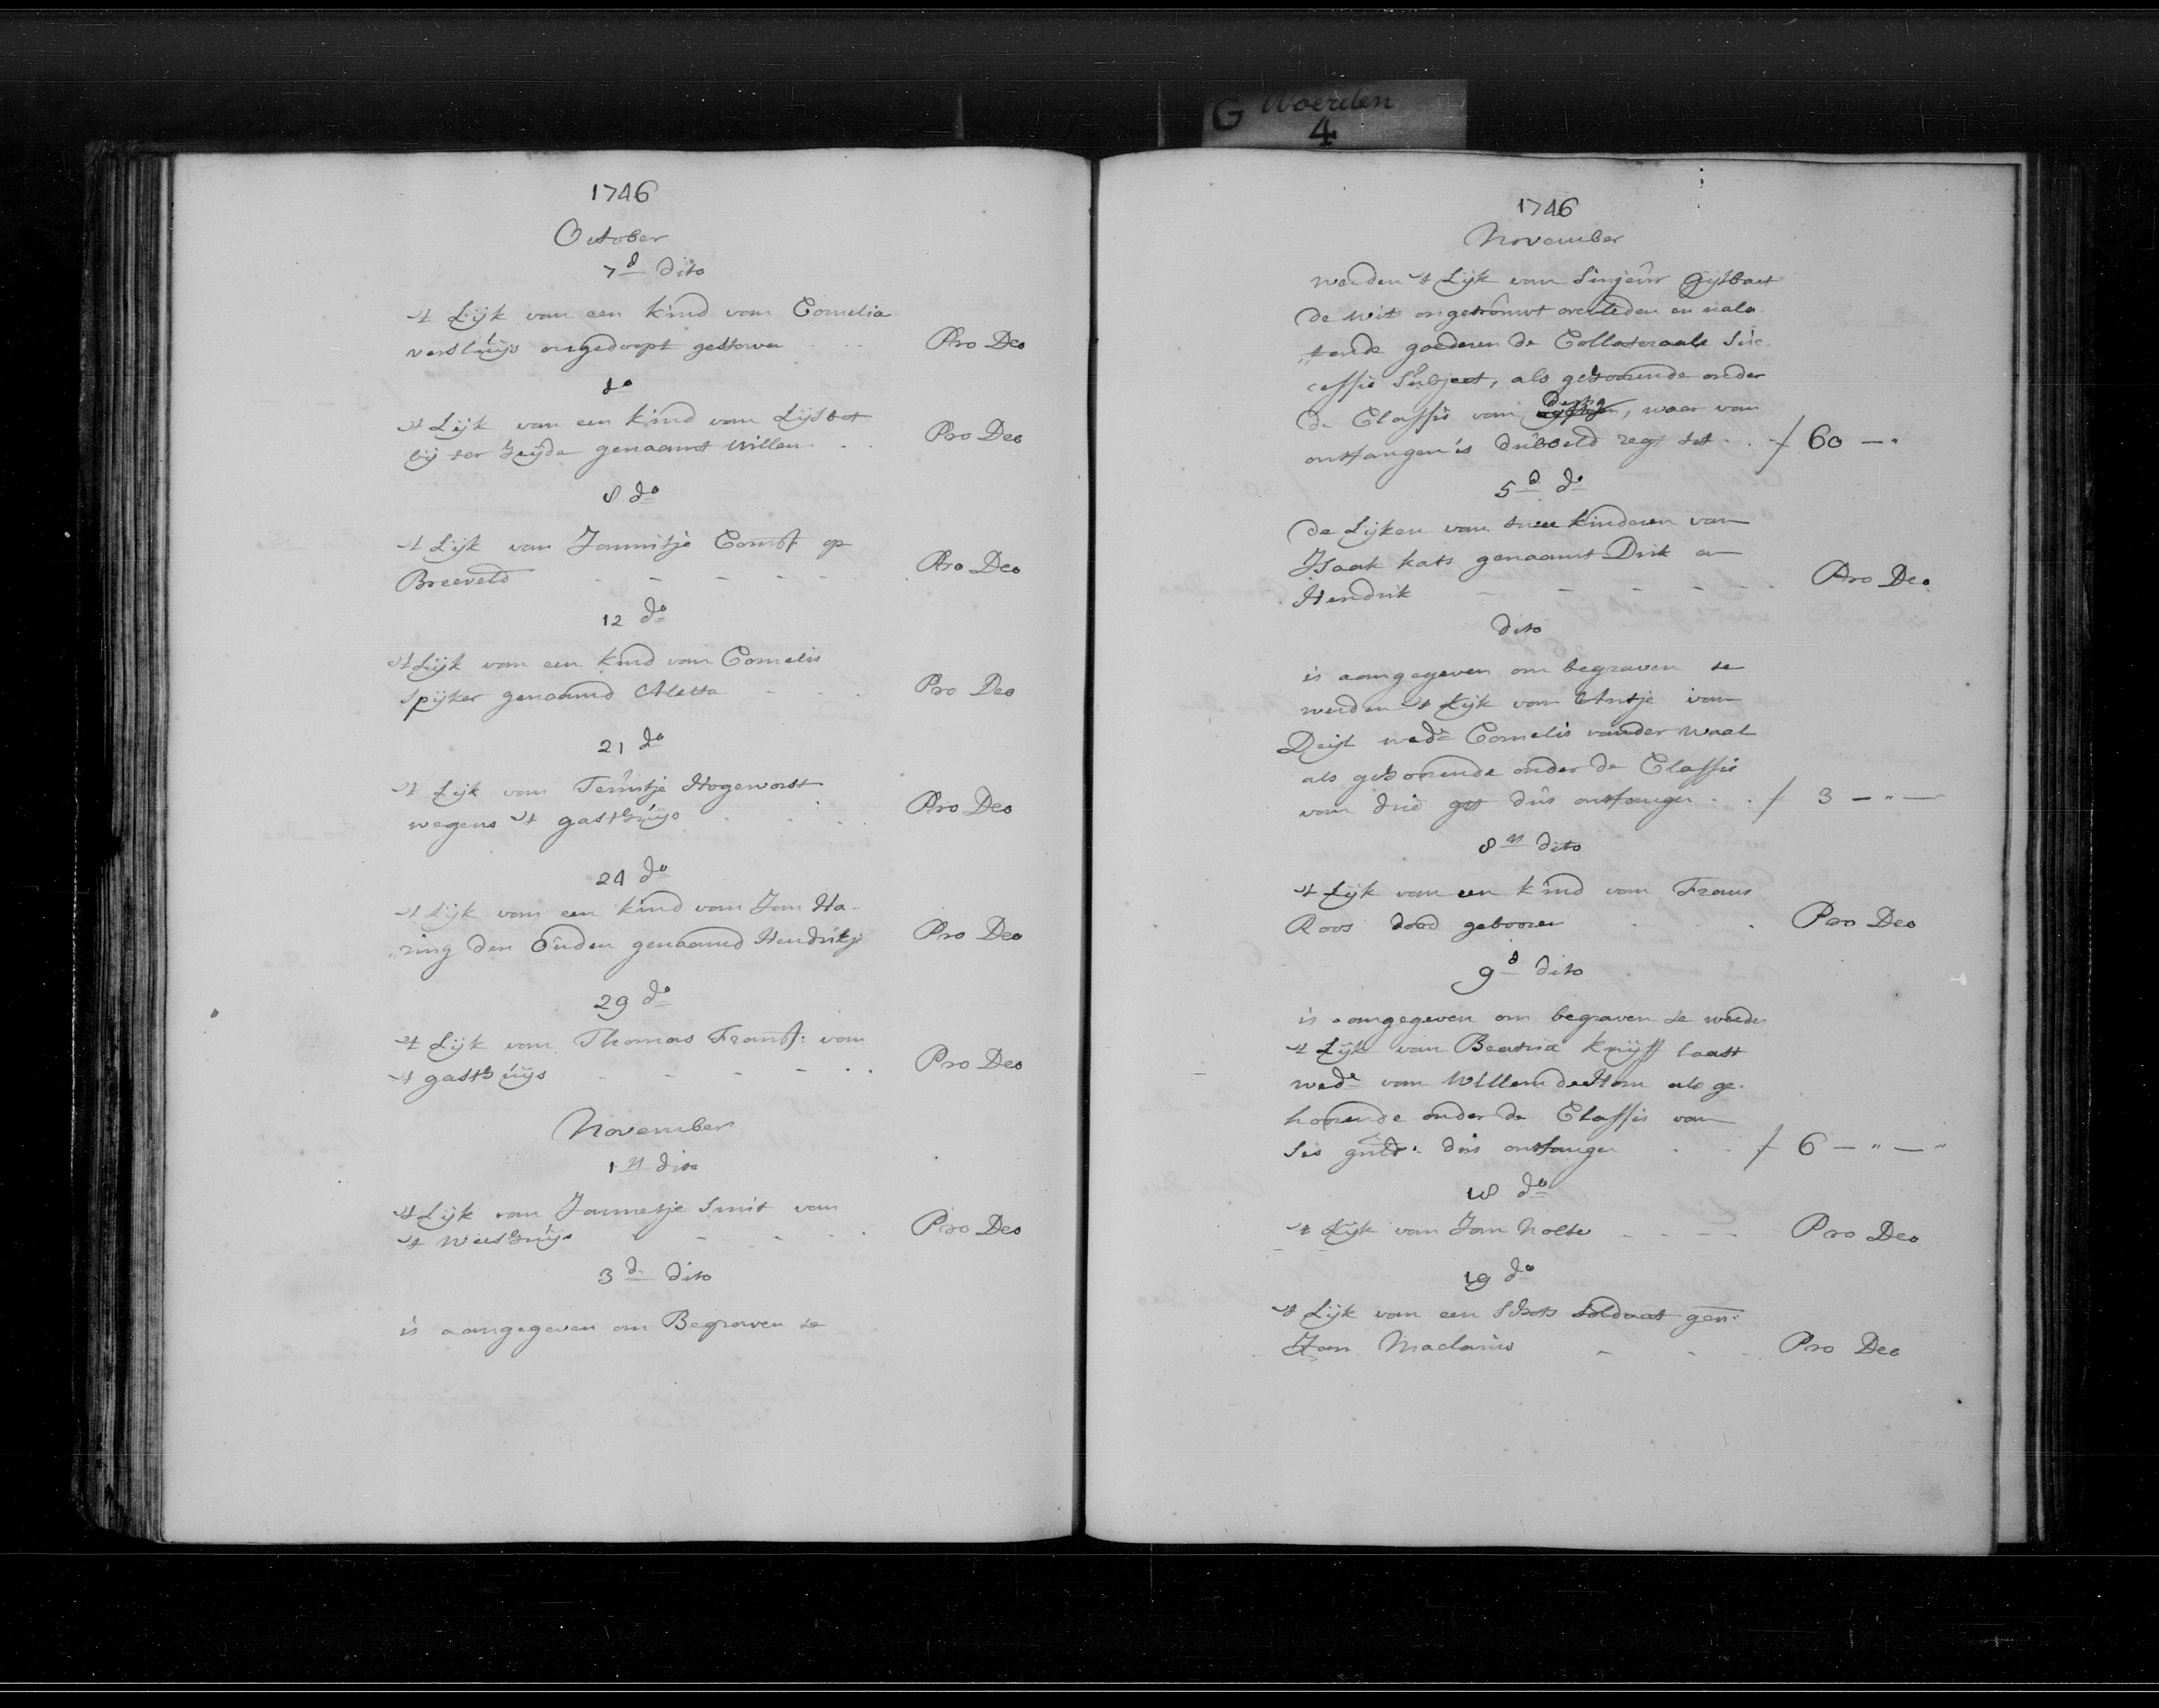 G Woerden
4
1746
October
7d dito
't Lijk van een kind van Cornelia
versluijs ongedoopt gestorven Pro Deo
do
't Lijk van een kind van Lijsbet
bij der heijde genaamt Willem Pro Deo
8 do
't Lijk van Jannitje op
Breeveld Pro Deo
12 do
't Lijk van een kind van Cornelis
Spijker genaamd Aletta Pro Deo
21 do
't Lijk van Teuntje Hogevorst
wegens 't gasthuijs Pro Deo
24 do
't Lijk van een kind van Jan Ha-
„ring den Ouden genaamd Hendrikje Pro Deo
29 do
't Lijk van Thomas Fransz: van
't gasthuijs Pro Deo
November
1n dito
't Lijk van Jannetje Smit van
't Weeshuijs Pro Deo
3d dito
is aangegeven om Begraven te
1746
November
werden 't Lijk van Sinjeur Gijsbart
de Wit ongetrouwt overleden en nala
„tende goederen de Collateraale Suc-
cessie Subject, als gehoorende onder
de Classis van dertig, waar van
ontfangen is dubbeld regt dus f 60 -
5d do
De Lijken van twee kinderen van
Isaak kats genaamt Dirk en
Hendrik Pro Deo
dito
is aangegeven om begraven te
werden 't Lijk van Antje van
Deijl wede Cornelis vander Waal
als gehorende onder de Classis
van drie gls dus ontfangen f 3 - " -
8n dito
't Lijk van een kind van Frans
Roos dood gebooren Pro Deo
9d dito
is aangegeven om begraven te werden
't Lijk van Beatrix Knijff laast
wede van Willem den Ham als ge-
horende onder de Classis van
Ses guld: dus ontfangen f 6 - " - "
18 do
't Lijk van Jan Nolte Pro Deo
19 do
't Lijk van een Schots Soldaat gen:
Jan Pro Deo